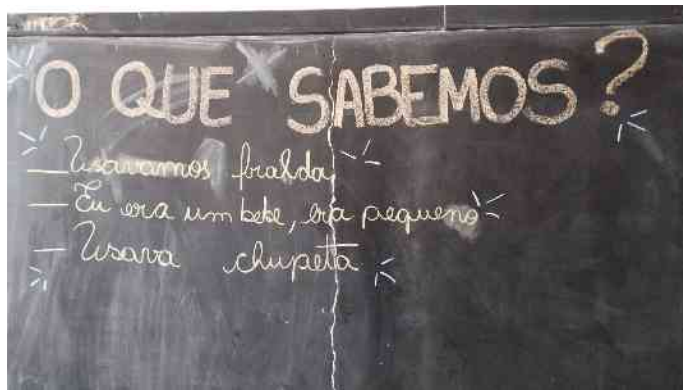 O QUE SABEMOS?
— Usavamos fralda
— Eu era um bebe, era pequeno
— Usava chupeta